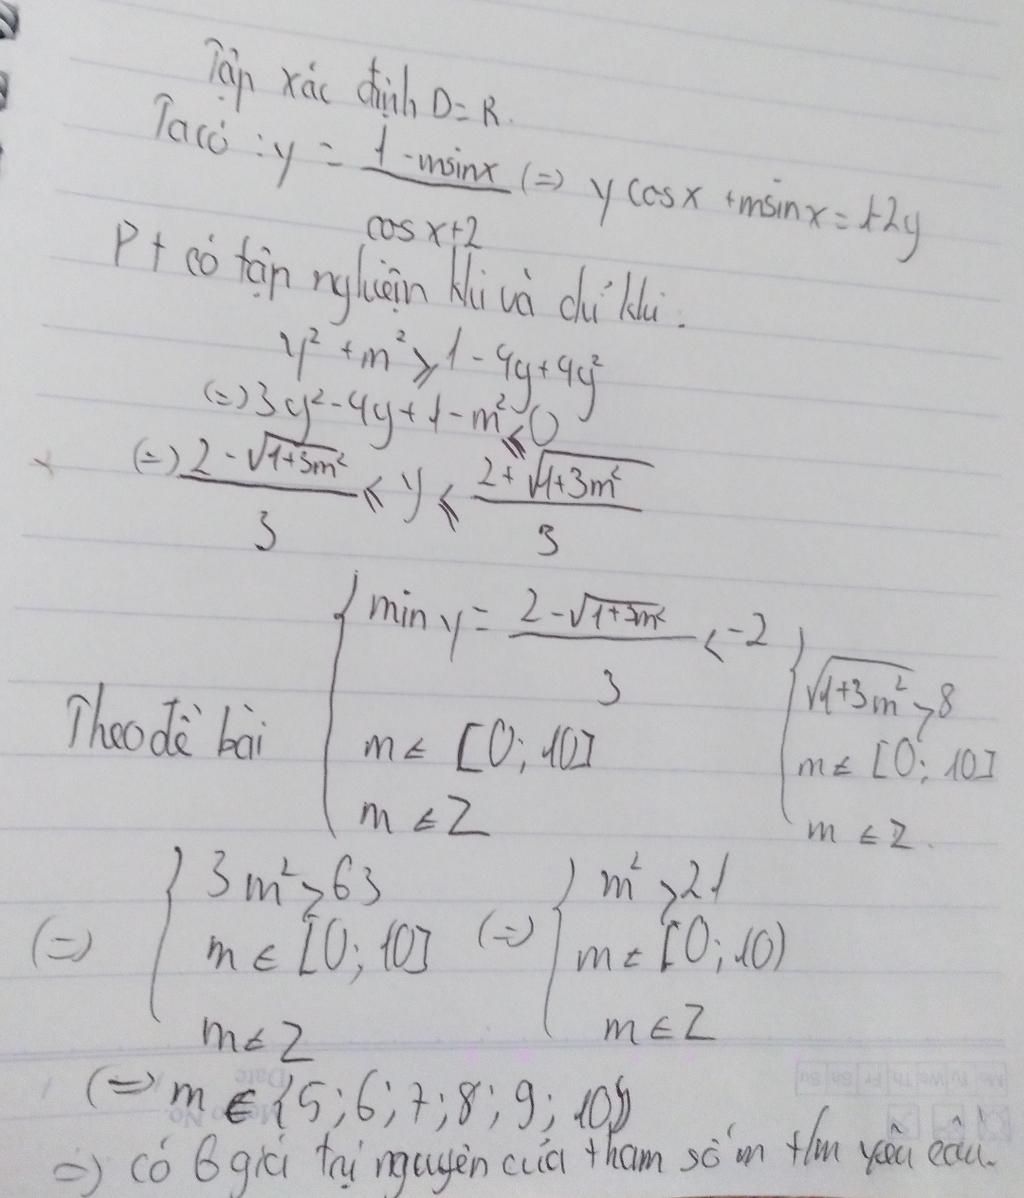 Tập xác định D=R.
Ta có : y = \frac{1 - msinx}{cos x+2} (=) y cosx +msinx = 1-2y
Pt có tập nghiệm khi và chỉ khi :
y² + m² ≥ 1 - 4y + 4y²
(=) 3y² - 4y + 1 - m² ≤ 0
(=) \frac{2 - √(1+3m²)}{3} ≤ y ≤ \frac{2 + √(1+3m²)}{3}
Theo đề bài { min y = \frac{2 - √(1+3m²)}{3} < -2 ; m ∈ [0; 10] ; m ∈ Z { √(1+3m²) > 8 ; m ∈ [0; 10] ; m ∈ Z.
(=) { 3m² > 63 ; m ∈ [0; 10] ; m ∈ Z (=) { m² > 21 ; m ∈ [0; 10) ; m ∈ Z
(=) m ∈ {5; 6; 7; 8; 9; 10}
=) có 6 giá trị nguyên của tham số m t/m yêu cầu.